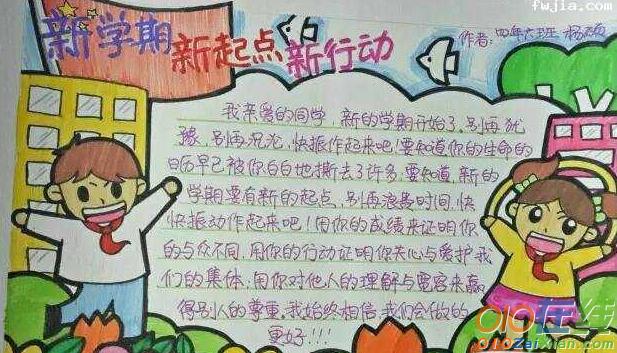 fwjia.com
新学期 新起点 新行动
作者:四年六班 杨硕
我亲爱的同学,新的学期开始了,别再犹
豫,别再沉沦,快振作起来吧!要知道你的生命的
日历早已被你白白地撕去了许多;要知道,新的
学期要有新的起点,别再浪费时间,快
快振动作起来吧!用你的成绩来证明你
的与众不同,用你的行动证明你关心与爱护我
们的集体;用你对他人的理解与宽容来赢
得别人的尊重。我始终相信,我们会做的
更好!!!
010在线
010ZaiXian.com